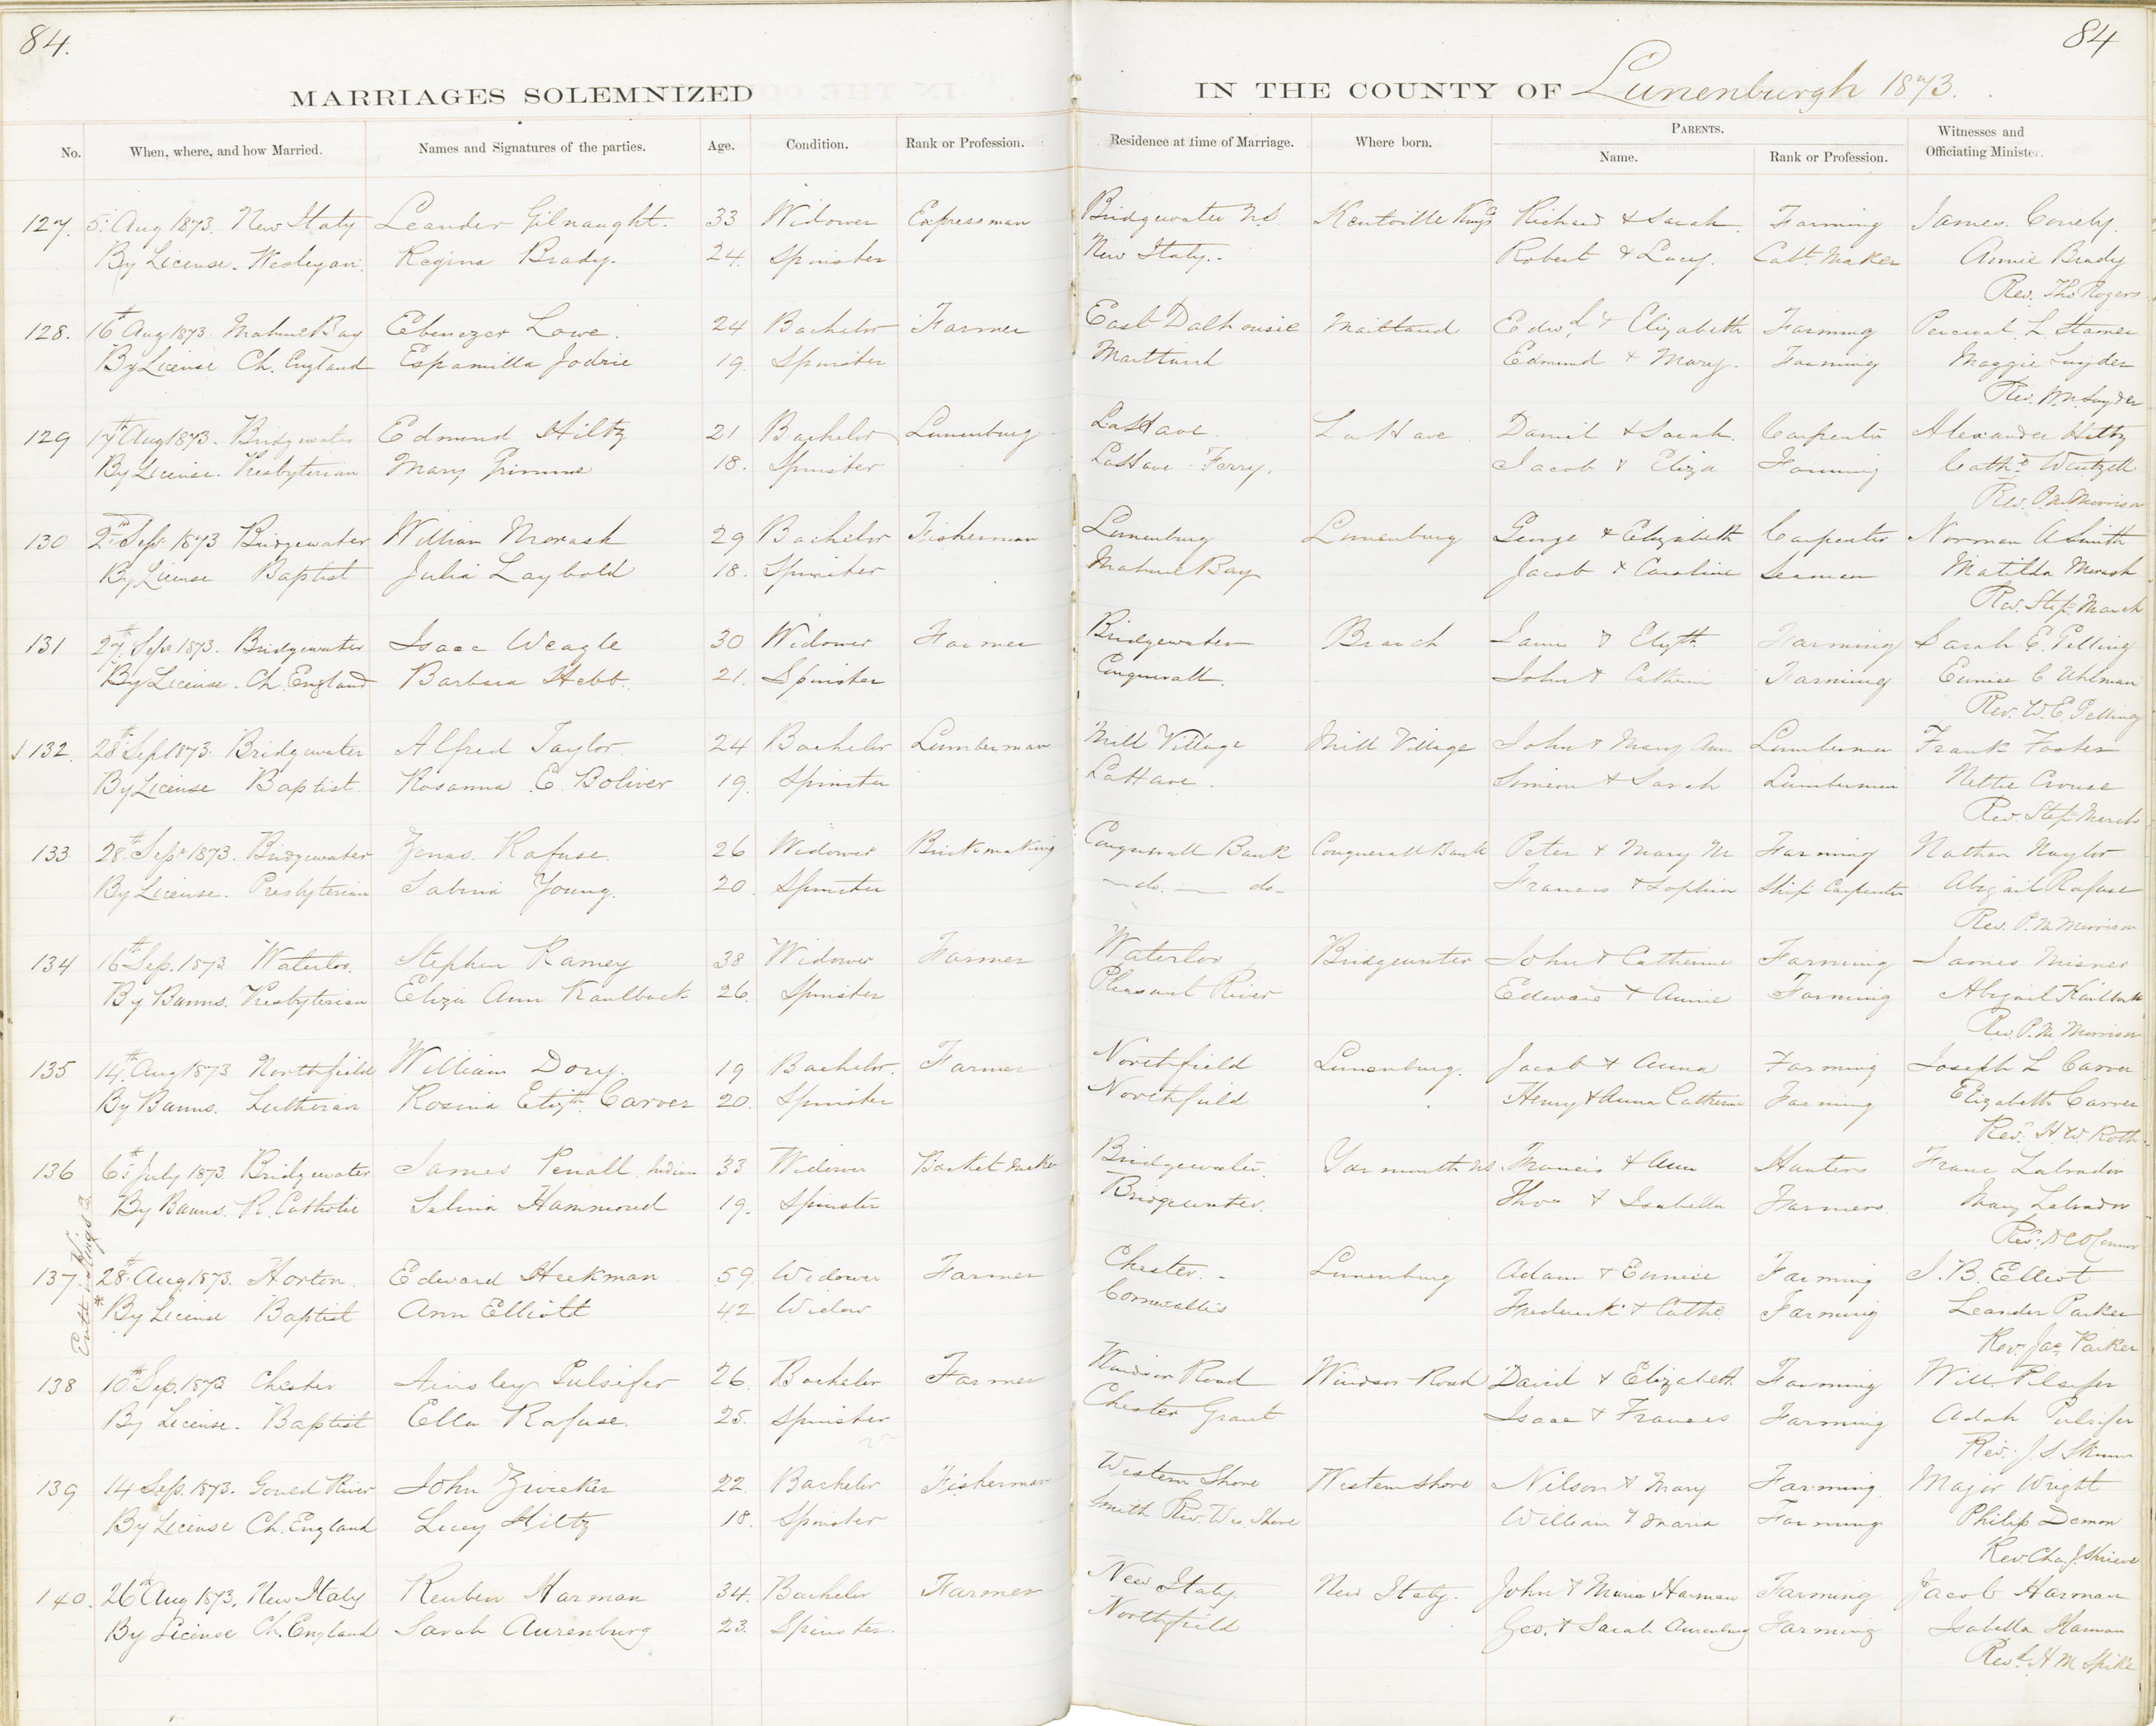 84. 84
MARRIAGES SOLEMNIZED IN THE COUNTY OF Lunenburgh 1873.
No. When, where, and how Married. Names and Signatures of the parties. Age. Condition. Rank or Profession. Residence at time of Marriage. Where born. PARENTS. Name. Rank or Profession. Witnesses and Officiating Minister.
127. 5th Aug 1873. New Italy Leander Gilnaught. 33 Widower Expressman Bridgewater NS Kentville Kings Co Richard & Sarah. Farming James Conely.
By License. Wesleyan. Regina Brady. 24. Spinster New Italy. Robert & Lucy. Cabt. Maker Annie Brady
Rev. Thos Rogers
128. 16th Aug 1873. Mahone Bay Ebenezer Lowe. 24 Bachelor Farmer East Dalhousie Maitland Edwd & Elizabeth Farming Percival L. Stamer
By License Ch. England Espamilla Jodrie 19. Spinster Maitland Edmund & Mary. Farming Maggie Snyder
Rev. Wm Snyder
129 14th Aug 1873. Bridgewater Edmund Hiltz 21 Bachelor Lunenburg LaHave. LaHave. Daniel & Sarah. Carpenter Alexander Hiltz
By License. Presbyterian Mary Grimme 18. Spinster LaHave Ferry. Jacob & Eliza Farming Cathe Wentzell
Rev. P.M. Morrison
130 2nd Sept 1873 Bridgewater William Morash 29 Bachelor Fisherman Lunenburg Lunenburg George & Elizabeth Carpenter Norman A Smith
By License Baptist Julia Laybold 18. Spinster Mahone Bay Jacob & Caroline Seaman Matilda Morash
Rev. Step. March
131 27th Sept 1873. Bridgewater Isaac Weagle 30 Widower Farmer Bridgewater Branch James & Elizth Farming Sarah E. Gelling
By License. Ch. England Barbara Hebb. 21. Spinster Conquerall. John & Catherine Farming Eunice C Uhlman
Rev. W.E. Gelling
132. 28th Sep 1873. Bridgewater Alfred Taylor. 24 Bachelor Lumberman Mill Village Mill Village John & Mary Ann Lumberman Frank Foster
By License Baptist. Rosanna E. Boliver 19. Spinster LaHave. Simeon & Sarah Lumberman Nettie Crouse
Rev Step. March
133 28th Sept 1873. Bridgewater Zenas Rafuse. 26 Widower Brickmaking Conquerall Bank Conquerall Bank Peter & Mary M Farming Nathan Naylor
By License. Presbyterian Sabina Young. 20. Spinster do. do Francis & Sophia Ship Carpenter Abigail Rafuse
Rev. P.M. Morrison
134 16th Sep. 1873 Waterloo. Stephen Ramey 38 Widower Farmer Waterloo Bridgewater John & Catherine Farming James Misner
By Banns. Presbyterian Eliza Ann Kaulback 26. Spinster Pleasant River Edward & Annie Farming Abigail Kaulback
Rev P.M. Morrison
135 14th Aug 1873 Northfield William Dory. 19 Bachelor. Farmer Northfield Lunenburg. Jacob & Anna Farming Joseph L Carver
By Banns. Lutheran Rosina Elizth Carver 20. Spinster Northfield Henry & Anna Catherine Farming Elizabeth Carver
Rev. H.W Roth
136 6th July 1873. Bridgewater James Penall. Indian 33 Widower Basket maker Bridgewater. Yarmouth NS. Francis & Ann Hunters Franc Labrador
By Banns. R. Catholic Salina Hammond 19. Spinster Bridgewater. Thos & Isabella Farmers. Mary Labrador
Rev. D C O'Connor
137. 28th Aug 1873. Horton. Edward Heckman 59. Widower Farmer Chester. Lunenburg Adam & Eunice Farming J. B. Elliot
* By License Baptist Ann Elliott 42 Widow Cornwallis Frederick & Cathe. Farming Leander Parker
Rev. Jas Parker
138 10th Sep. 1873 Chester Ainsley Pulsifer 26. Bachelor Farmer Windsor Road Windsor Road David & Elizabeth Farming Will. Plsifer
By License. Baptist Ella Rafuse. 25. Spinster Chester Grant Isaac & Frances Farming Adah Pulsifer
Rev. J. S. Skinner
139 14 Sep. 1873. Goued River John Zwicker 22. Bachelor Fisherman Western Shore Western Shore Nilson & Mary Farming. Major Wright
By License Ch. England Lucy Hiltz 18. Spinster Smith Rev. Wes. Shore William & Maria Farming Philip Demon
Rev Cha. J. Shrieve
140. 26th Aug 1873, New Italy Reuben Harman 34. Bachelor Farmer New Italy. New Italy. John & Maria Harman Farming Jacob Harman
By License Ch. England Sarah Aurenburg 23. Spinster. Northfield Geo. & Sarah Aurenburg Farming Isabella Harman
Revd. H M Spike